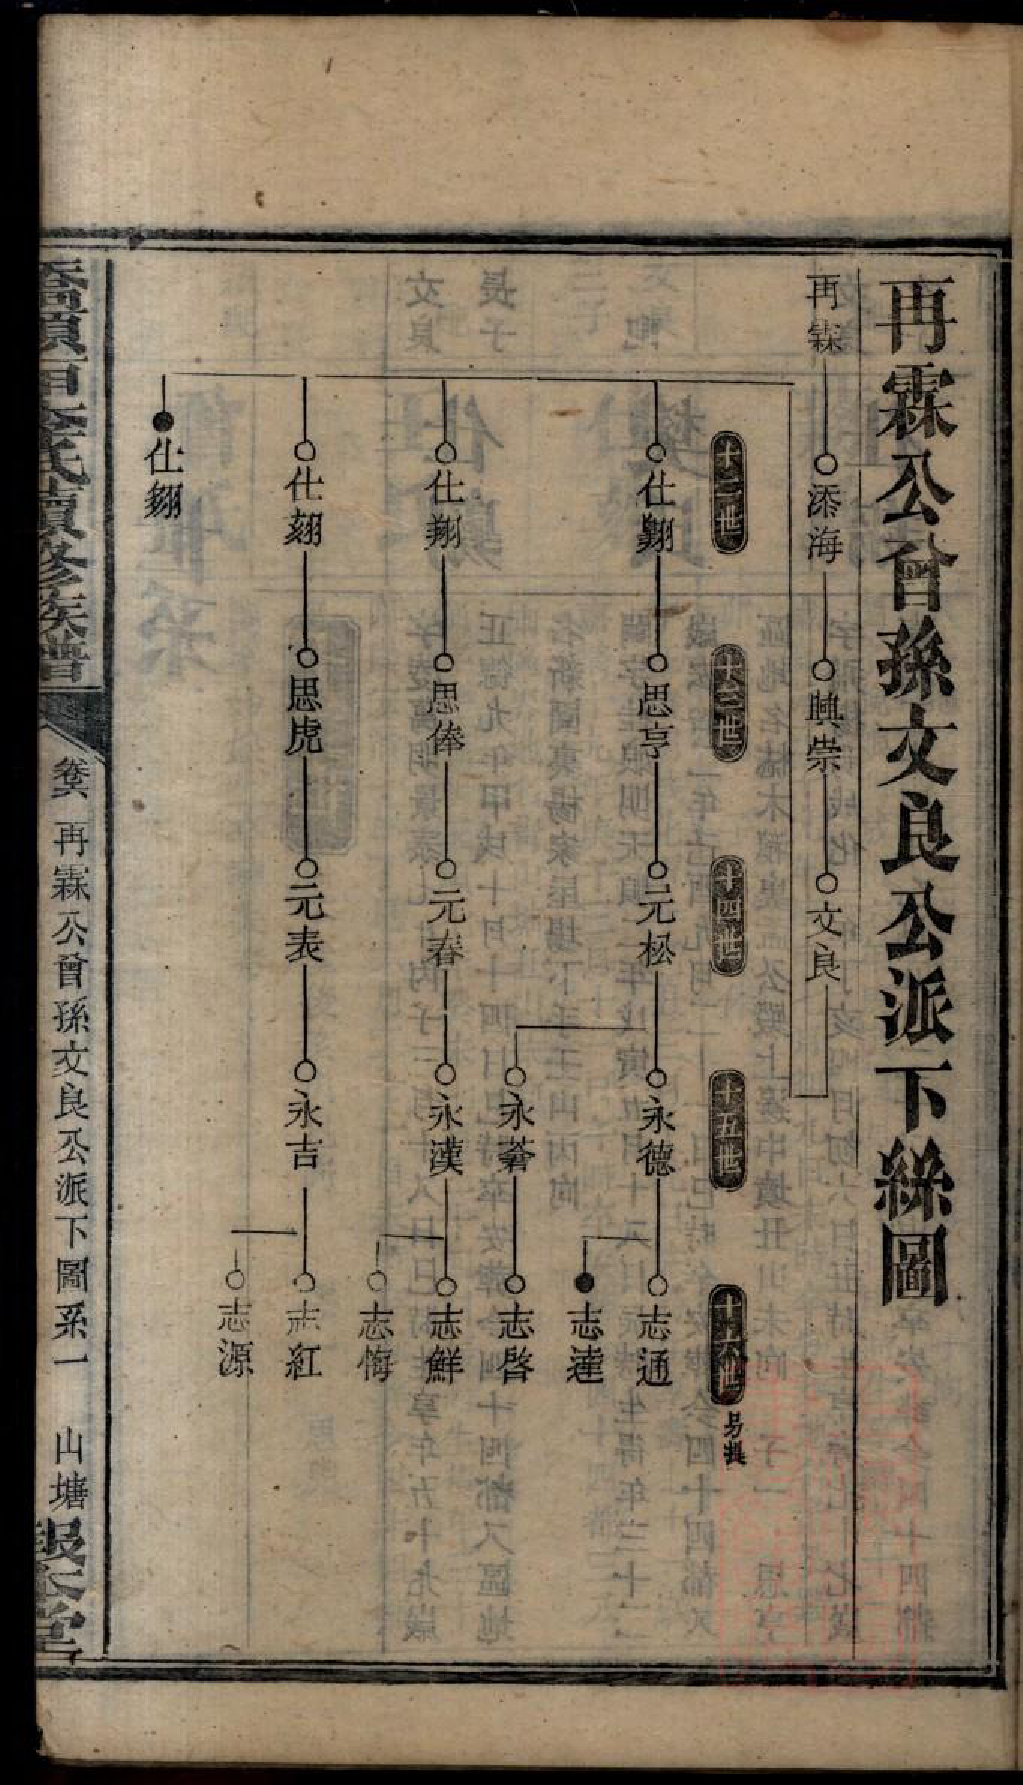 再霖公曾孫文良公派下絲圖
再霖 添海 興崇 文良
十二世 十三世 十四世 十五世 十六世 另提
仕鄓 思亨 元松 永德 志通
志達
永蒼 志啓
仕翔 思俸 元春 永漢 志鮮
志悔
仕刻 思虎 元表 永吉 志紅
志源
仕翎
李氏續修族譜
卷六 再霖公曾孫文良公派下圖系一 山塘 報本堂